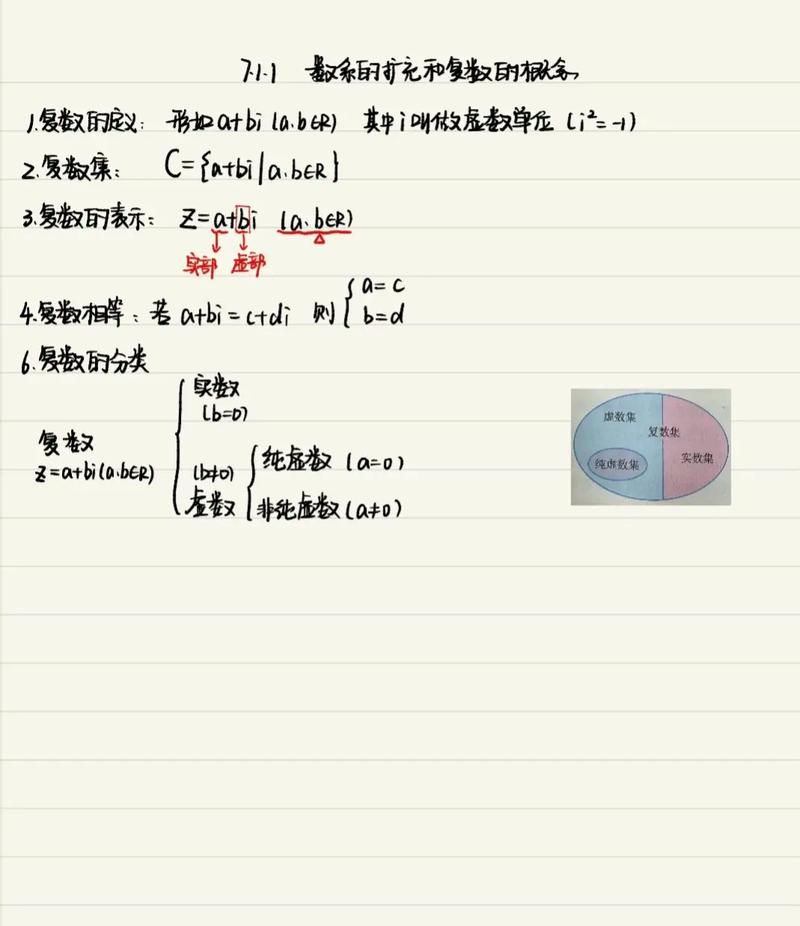 7.1.1 数系的扩充和复数的概念
1.复数的定义: 形如a+bi(a.b∈R) 其中i叫做虚数单位(i²=-1)
2.复数集: C={a+bi|a.b∈R}
3.复数的表示: Z=a+bi (a.b∈R)
实部 虚部
4.复数相等:若a+bi=c+di 则{a=c
b=d
6.复数的分类
实数
(b=0)
复数
z=a+bi(a.b∈R)
(b≠0)
虚数
纯虚数(a=0)
非纯虚数(a≠0)
虚数集
复数集
纯虚数集
实数集